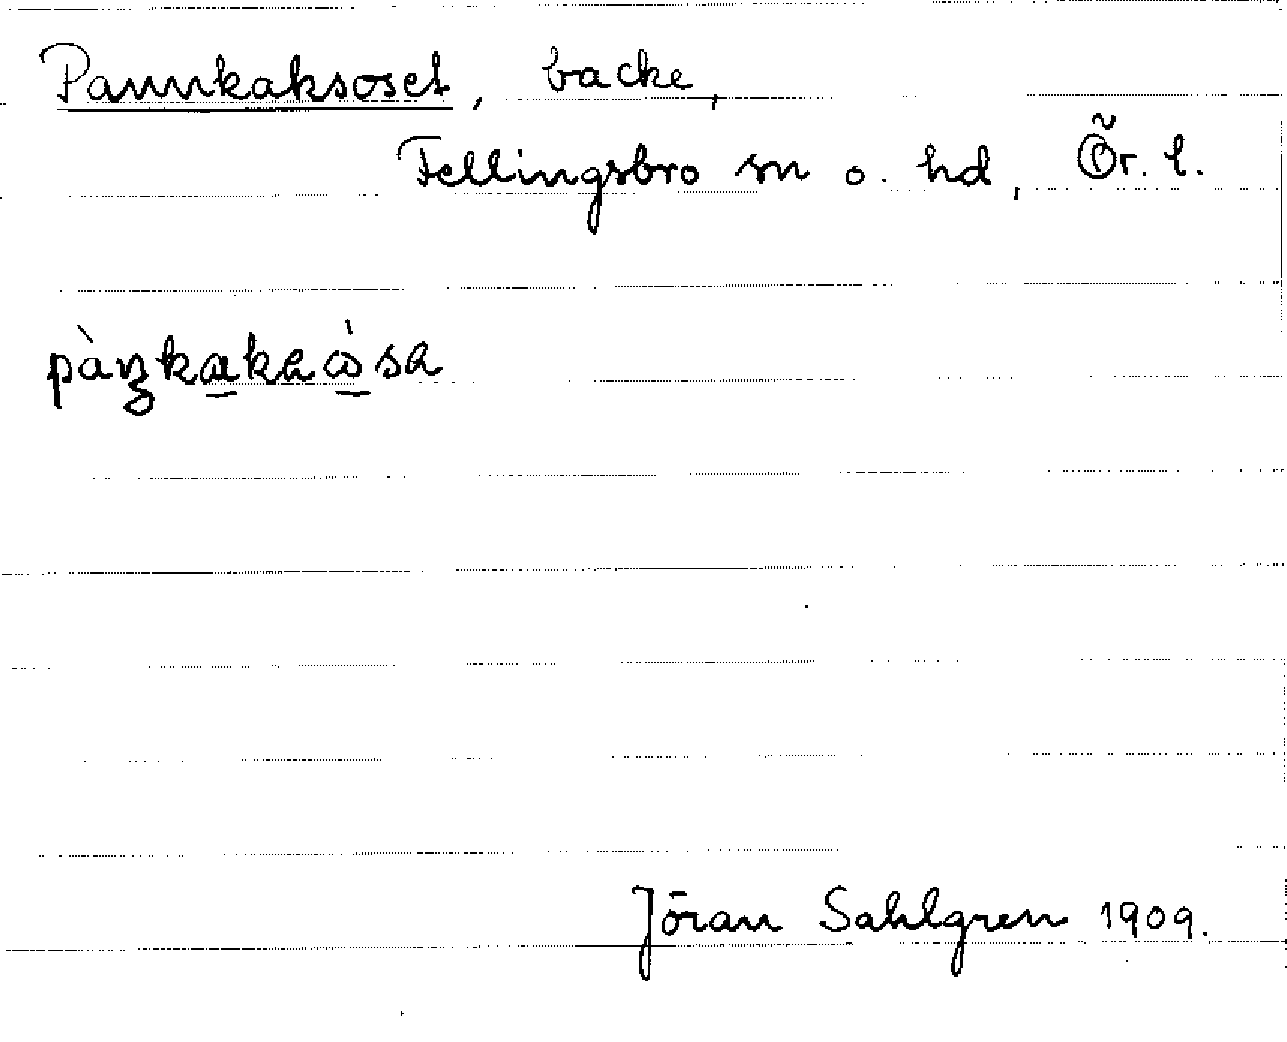 Pannkaksoset, backe,
Fellingsbro sn o. hd, Ör. l.
Jöran Sahlgren 1909.